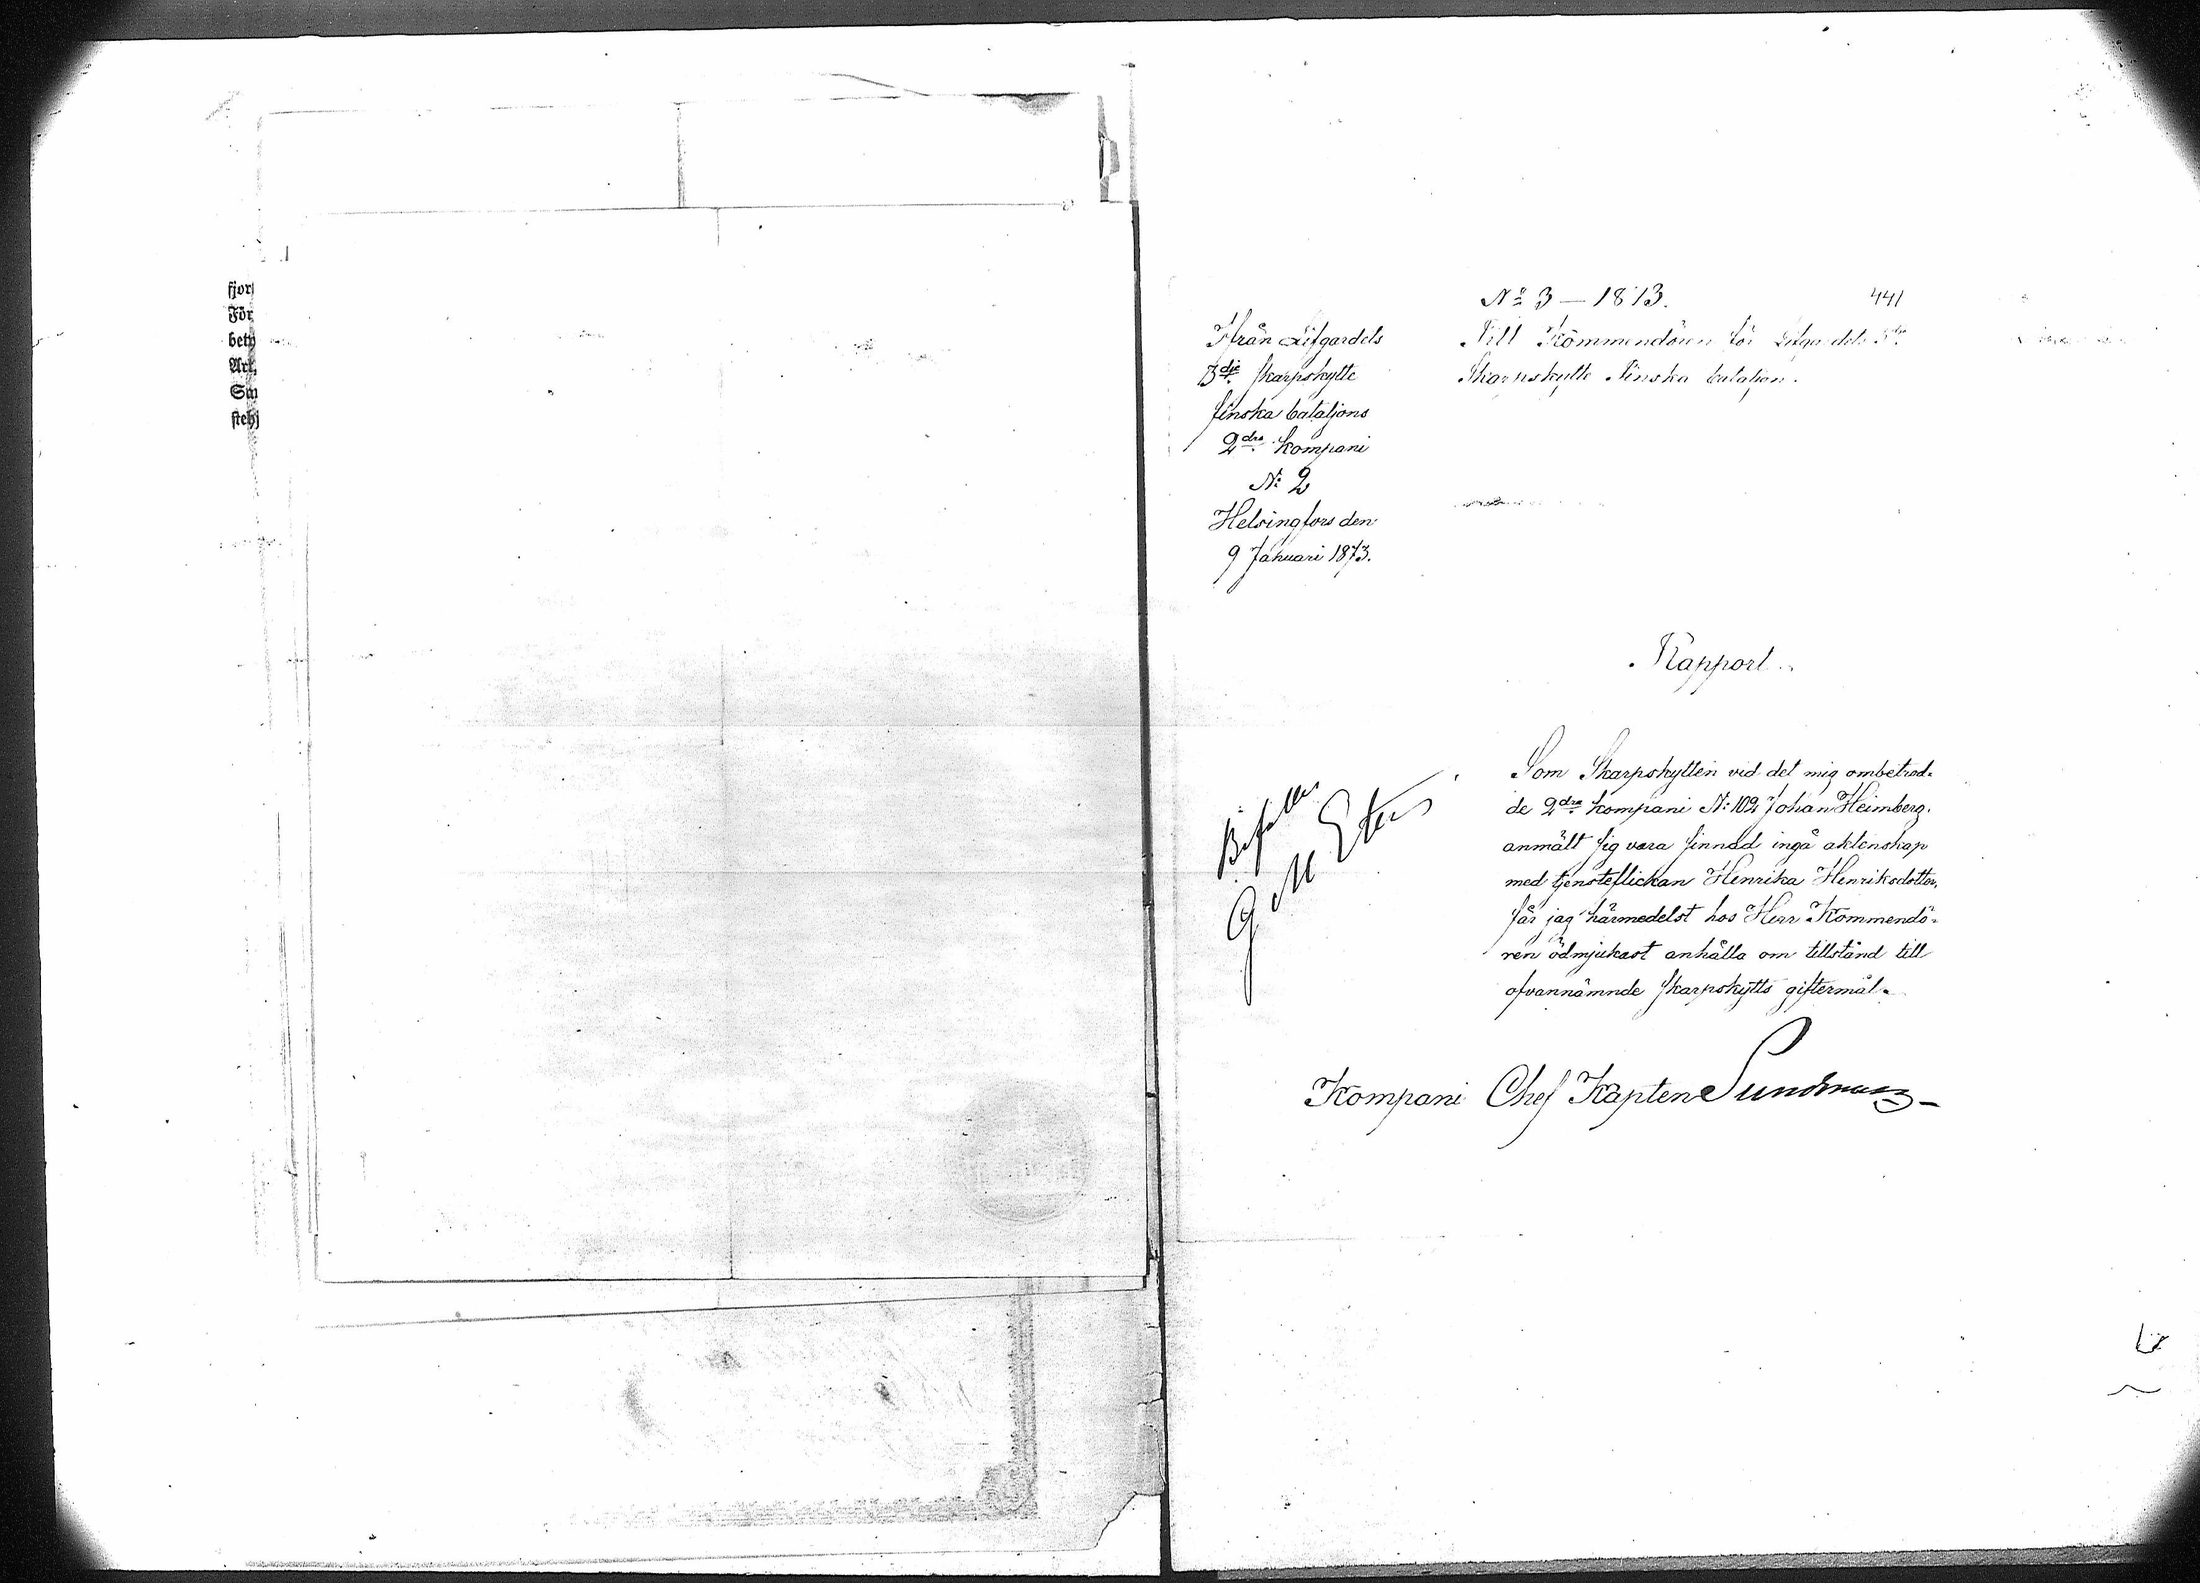 fjor
För
bety
Art.
Sm
steh
No 3 — 1873. 441
Ifrån Lifgardets
3dje skarpskytte
finska bataljons
2dra kompani
No 2
Helsingfors den
9 Januari 1873.
Till Kommendören för Lifgardets 3dje
Skarpskytte Finska bataljon.
Rapport.
Som Skarpskytten vid det mig ombetrod-
de 2dra kompani No 102 Johan Heimberg.
anmält sig vara sinnad ingå äktenskap
med tjensteflickan Henrika Henriksdotter,
får jag härmedelst hos Herr Kommendö-
ren ödmjukast anhålla om tillstånd till
ofvannämnde skarpskytts giftermål.
Bifalles
Kompani Chef Kapten Sundman